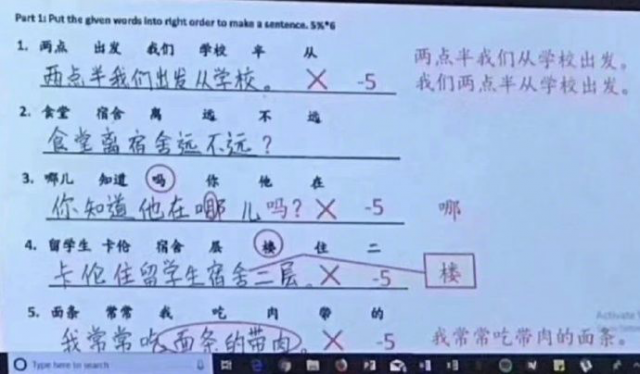 Part 1: Put the given words into right order to make a sentence. 5%*6
1. 两点 出发 我们 学校 半 从
两点半我们出发从学校。 × -5 两点半我们从学校出发。
我们两点半从学校出发。
2. 食堂 宿舍 离 远 不 远
食堂离宿舍远不远？
3. 哪儿 知道 吗 你 他 在
你知道他在哪儿吗？ × -5 哪
4. 留学生 卡伦 宿舍 层 楼 住 二
卡伦住留学生宿舍二层。 × -5 楼
5. 面条 常常 我 吃 肉 带 的
我常常吃面条的带肉。 × -5 我常常吃带肉的面条。
Activate
Type here to search